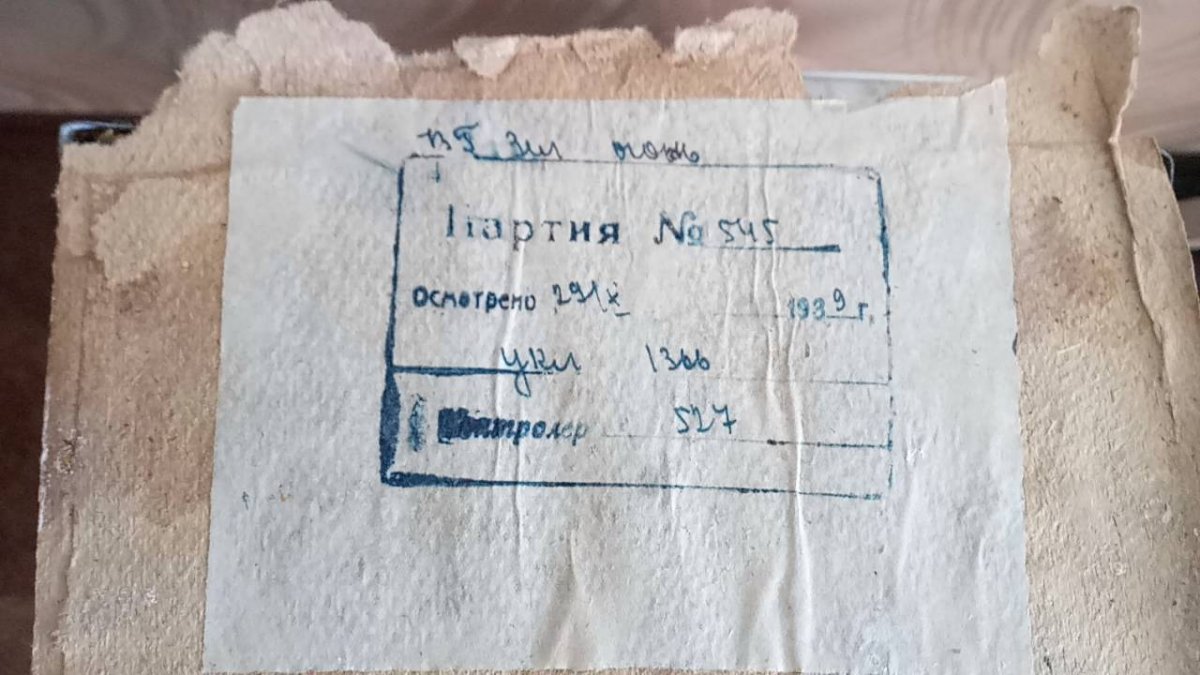 Партия № 545
Осмотрено 29/X 1939 г.
укл 1366
Контролер 527